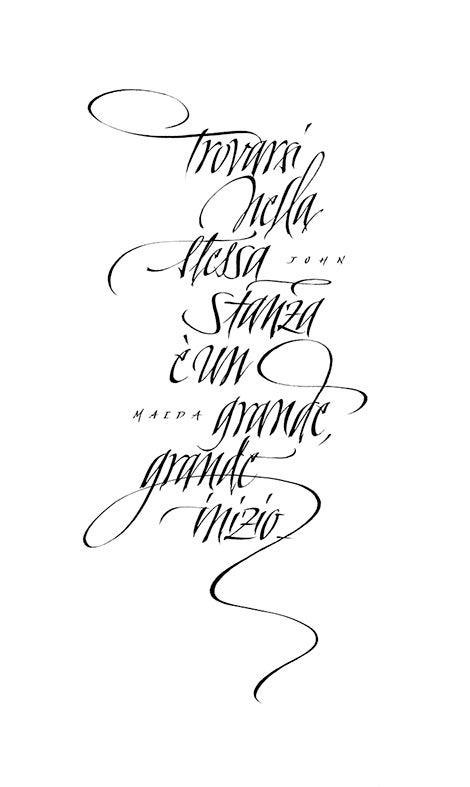 trovarsi
nella
stessa
JOHN
stanza
è un
MAEDA
grande,
grande
inizio